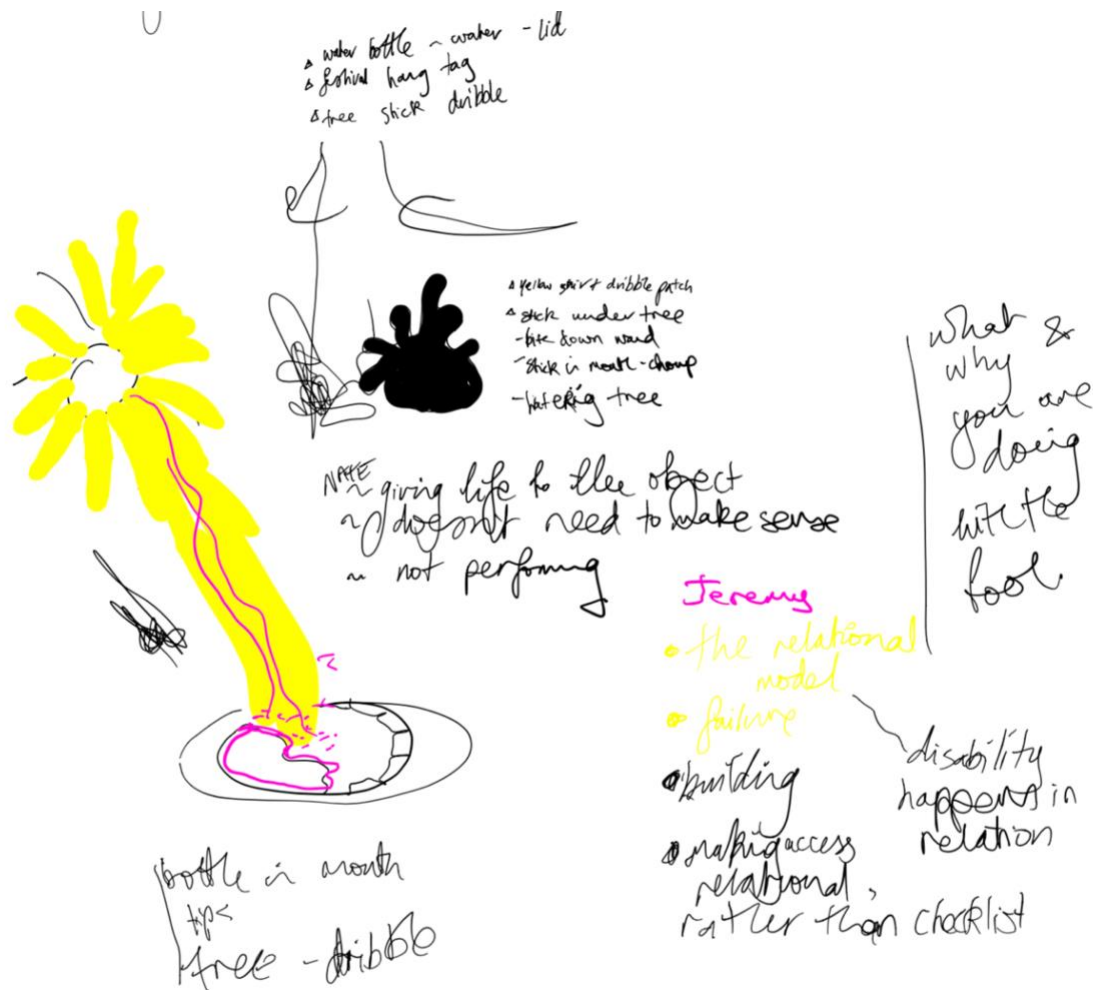 water bottle ~ water - lid
festival hang tag
tree stick dribble
yellow shirt dribble patch
stick under tree
- bite down
- stick in mouth - chomp
- watering tree
NATE
~ giving life to the object
~ doesn't need to make sense
~ not performing
what &
why
you are
doing
with the
fool.
Jeremy
• the relational
model
• failure
• building
• making access
relational,
rather than checklist
disability
happens in
relation
bottle in mouth
tips
tree - dribble